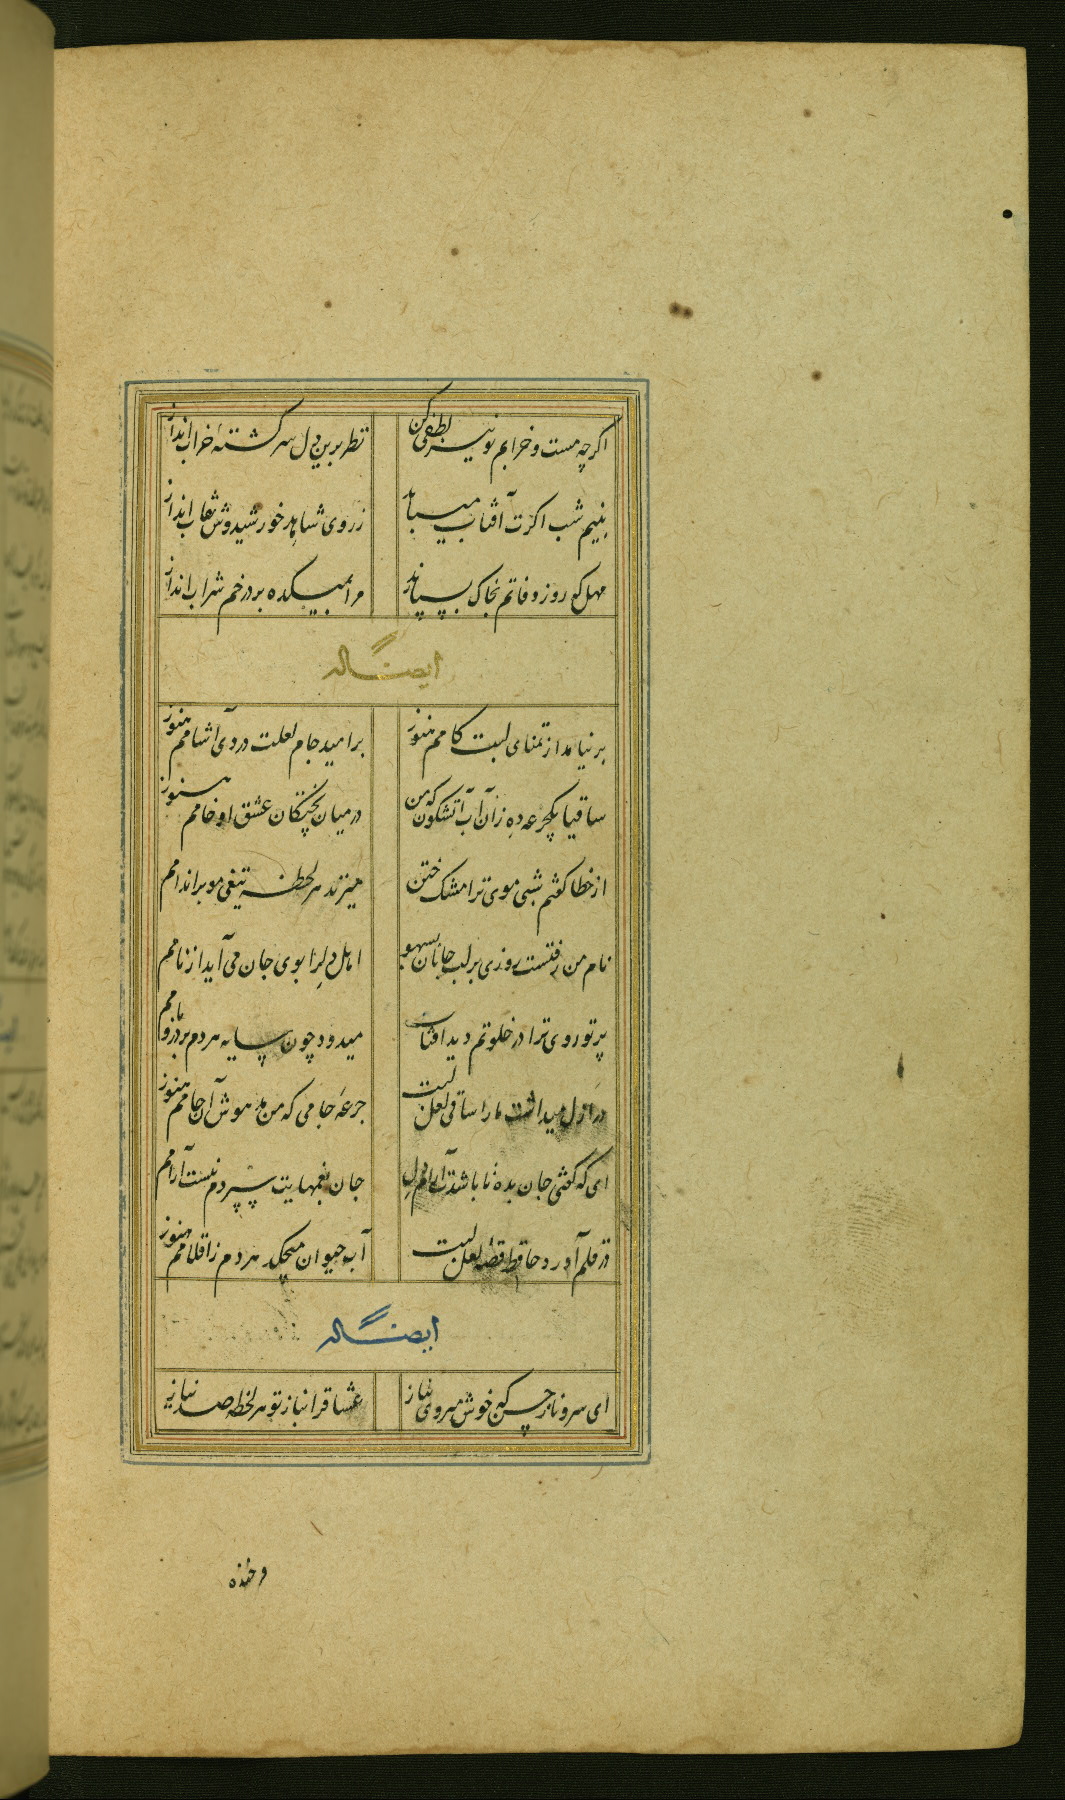 اگرچه مست و خرابم تو نیز لطفی کن نظر برین دل سرگشتهٔ خراب انداز
بنیم شب اگرت آفتاب میباید ز روی شاهد خورشیدوش نقاب انداز
مهل که روز وفاتم بخاک بسپارند مرا بمیکده بر در خم شراب انداز
ایضاً له
بر نیامد از تمنای لبت کامم هنوز بر امید جام لعلت دردی آشامم هنوز
ساقیا یکجرعه ده زآن آب آتشگون که من در میان پختگان عشق او خامم هنوز
از خطا گفتم شبی موی ترا مشک ختن میزند هر لحظه تیغی مو بر اندامم
نام من رفتست روزی بر لب جانان بسهو اهل دلرا بوی جان می آید از نامم
پرتو روی ترا در خلوتم دید آفتاب میدود چون سایه هر دم بر در و بامم
در ازل میداشت ما را ساقی لعل لبت جرعهٔ جامی که من مدهوش آن جامم هنوز
ای که گفتی جان بده تا باشدت آرام دل جان بغمهایت سپردم نیست آرامم
در قلم آورد حافظ قصهٔ لعل لبت آب حیوان میچکد هر دم ز اقلامم هنوز
ایضاً له
ای سرو ناز حسن که خوش میروی بناز عشاق را بناز تو هر لحظه صد نیاز
فرخنده